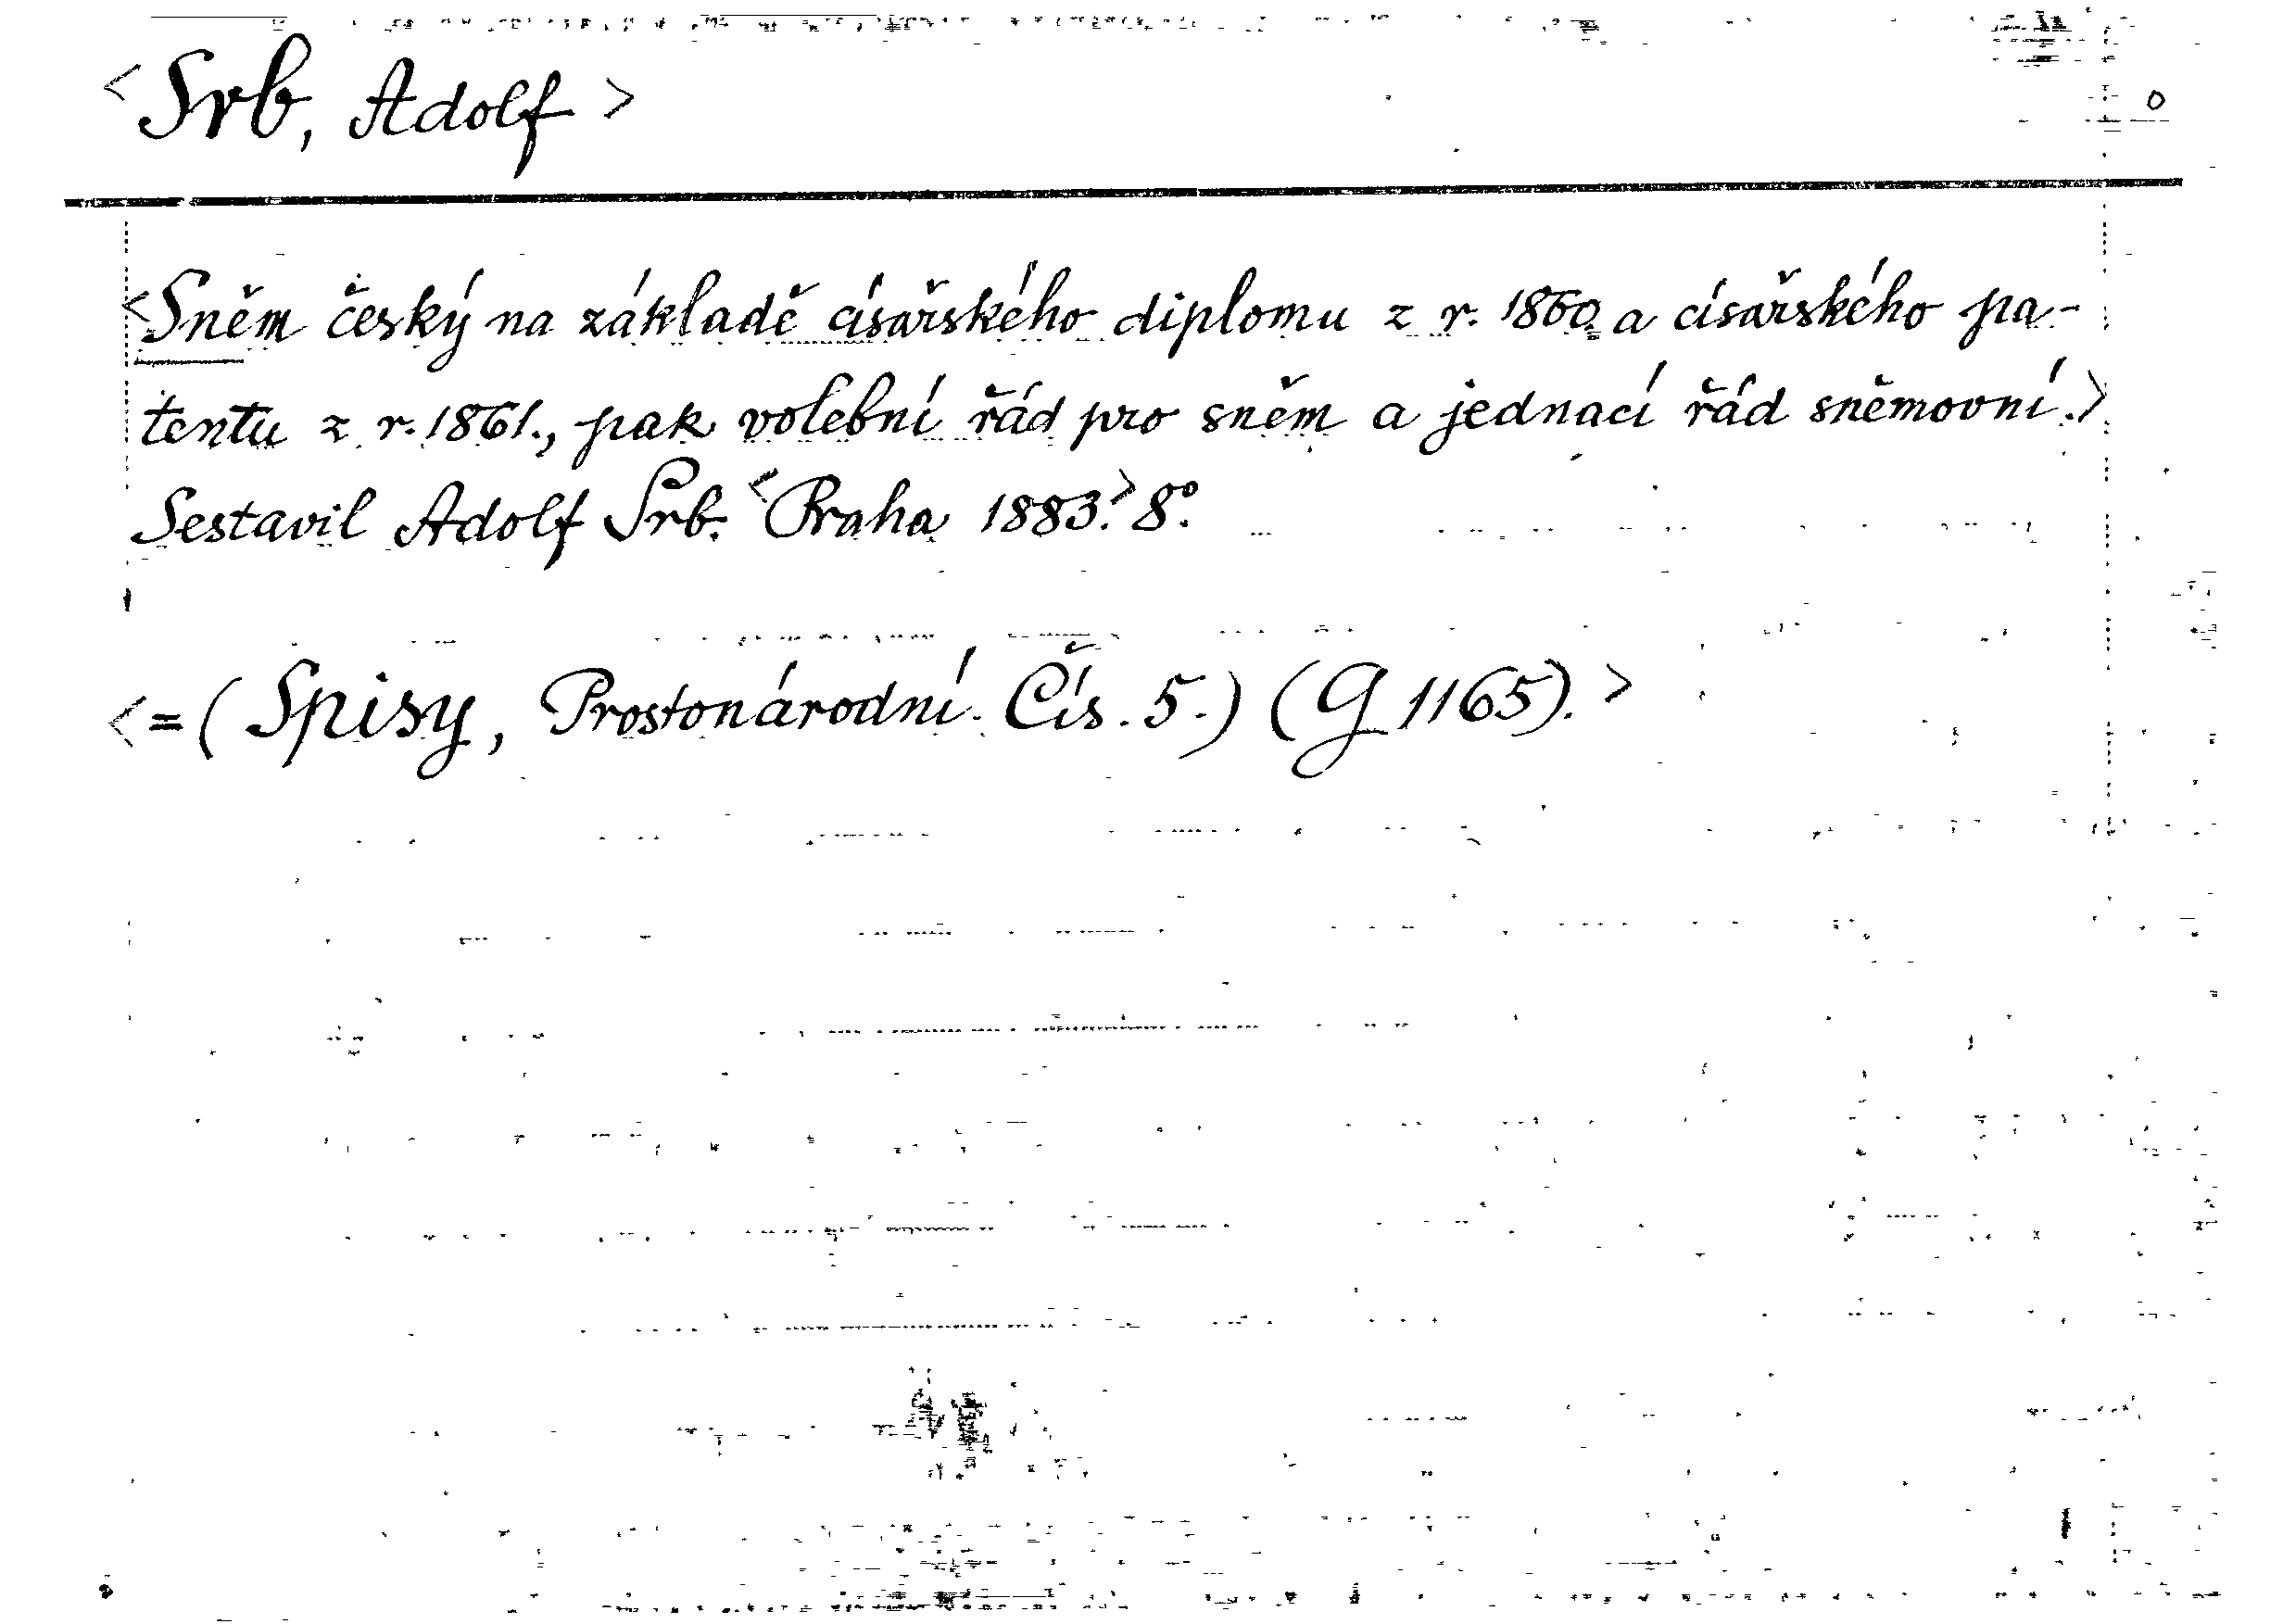 <Srb, Adolf>
o
<Sněm český na základě císařského diplomu z r. 1860 a císařského pa-
tentu z r. 1861., pak volební řád pro sněm a jednací řád sněmovní.>
Sestavil Adolf Srb. <Praha 1883.> 8º.
<=(Spisy, Prostonárodní. Čís. 5.) (G 1165).>